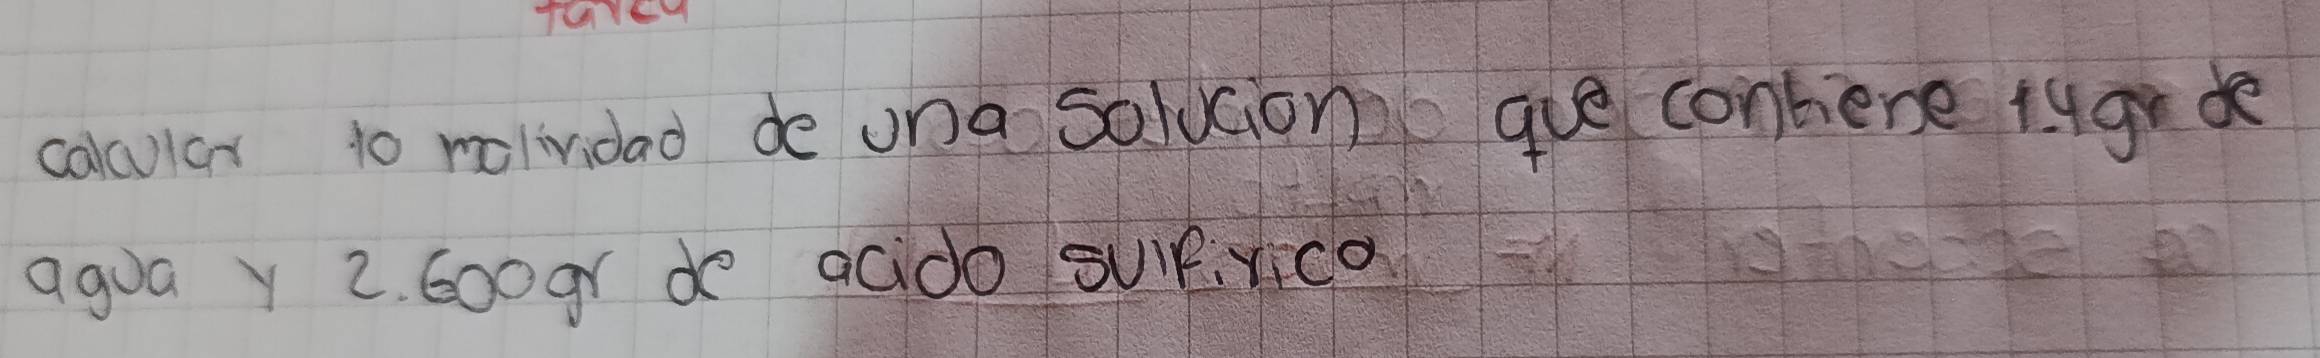 calcular la molividad de una solucion que contiene 1.4gr de
agua y 2.600gr de acido sulfirico